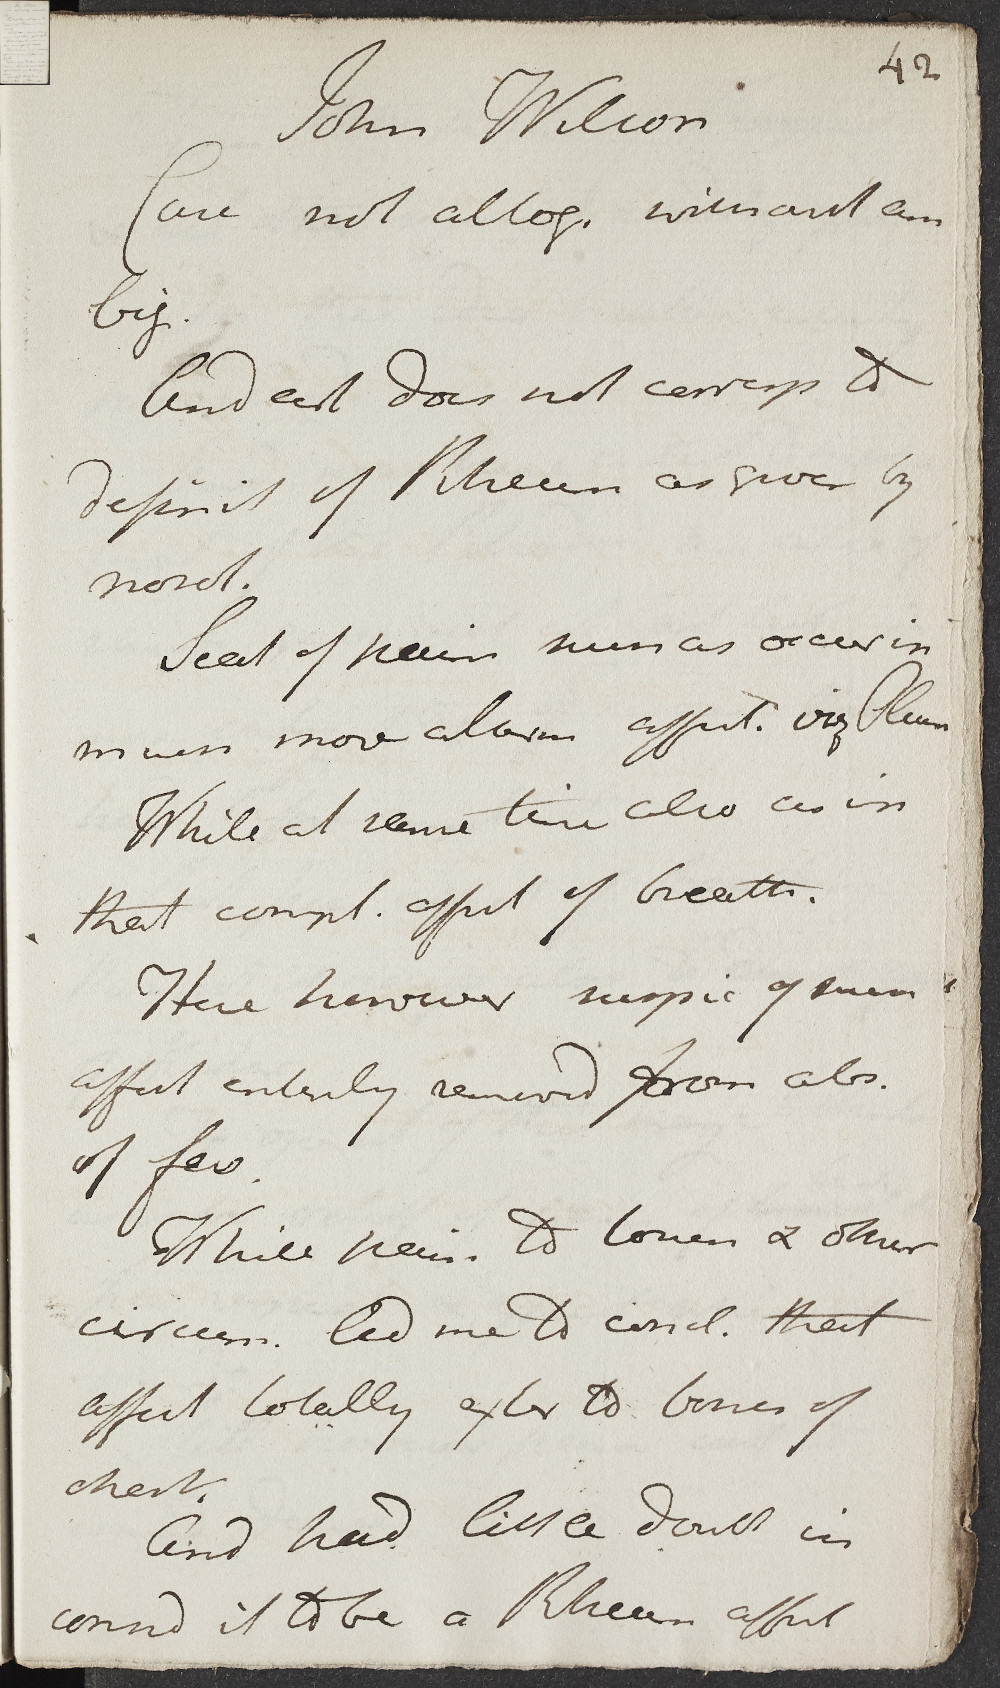 42
John Wilson
Case not altog. without am
big.
And cert does not corresp to
definit of Rheum as given by
nosol.
Seat of pain such as occur in
much more alarm affect. viz Pleur
While at same time also as in
that compl. affect of breath.
Here however suspic of such
affect enterly remov'd from abs.
of fev.
While pain to touch & other
circum. led me to concl. that
affect totally exter to bones of
chest.
And had little doubt in
consid it to be a Rheum affect